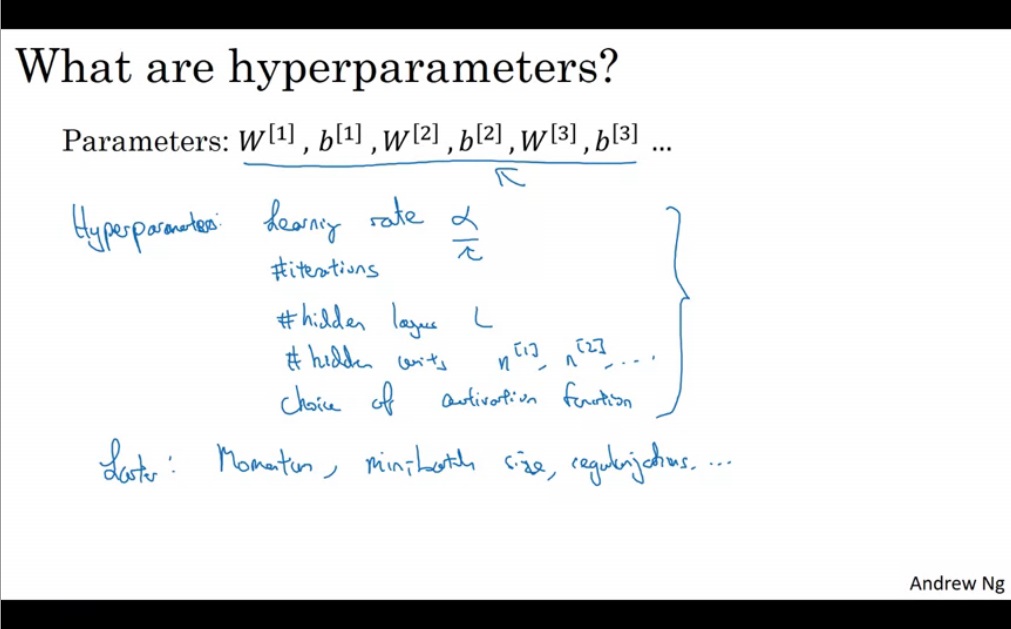 What are hyperparameters?
Parameters: W[1] , b[1] , W[2] , b[2] , W[3] , b[3] ...
Hyperparameters: Learning rate α
#iterations
#hidden layers L
# hidden units n[1], n[2], ....
Choice of activation function
Later: Momentum, minibatch size, regularizations. ...
Andrew Ng